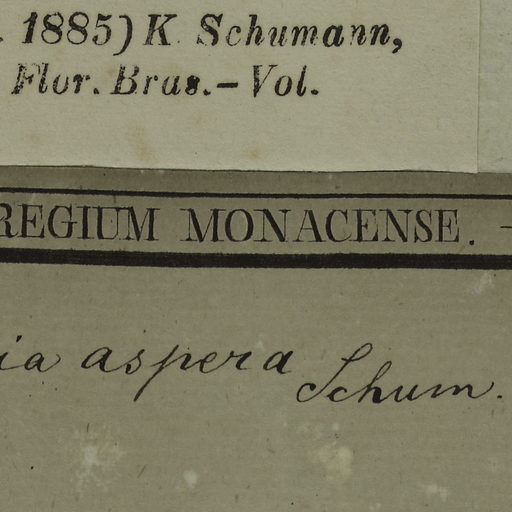 . 1885) K. Schumann,
Flor. Bras.– Vol.
REGIUM MONACENSE. –
ia aspera Schum.